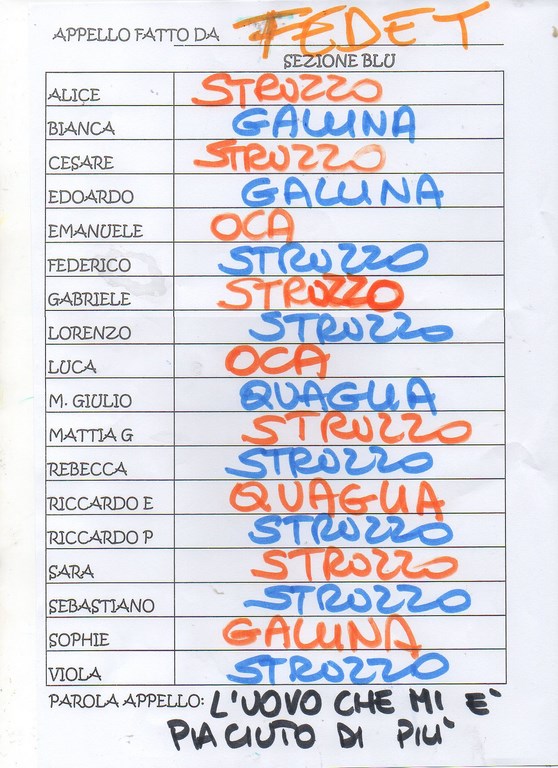 APPELLO FATTO DA FEDE T
SEZIONE BLU
ALICE STRUZZO
BIANCA GALLINA
CESARE STRUZZO
EDOARDO GALLINA
EMANUELE OCA
FEDERICO STRUZZO
GABRIELE STRUZZO
LORENZO STRUZZO
LUCA OCA
M. GIULIO QUAGLIA
MATTIA G STRUZZO
REBECCA STRUZZO
RICCARDO E QUAGLIA
RICCARDO P STRUZZO
SARA STRUZZO
SEBASTIANO STRUZZO
SOPHIE GALLINA
VIOLA STRUZZO
PAROLA APPELLO: L'UOVO CHE MI E'
PIACIUTO DI PIU'